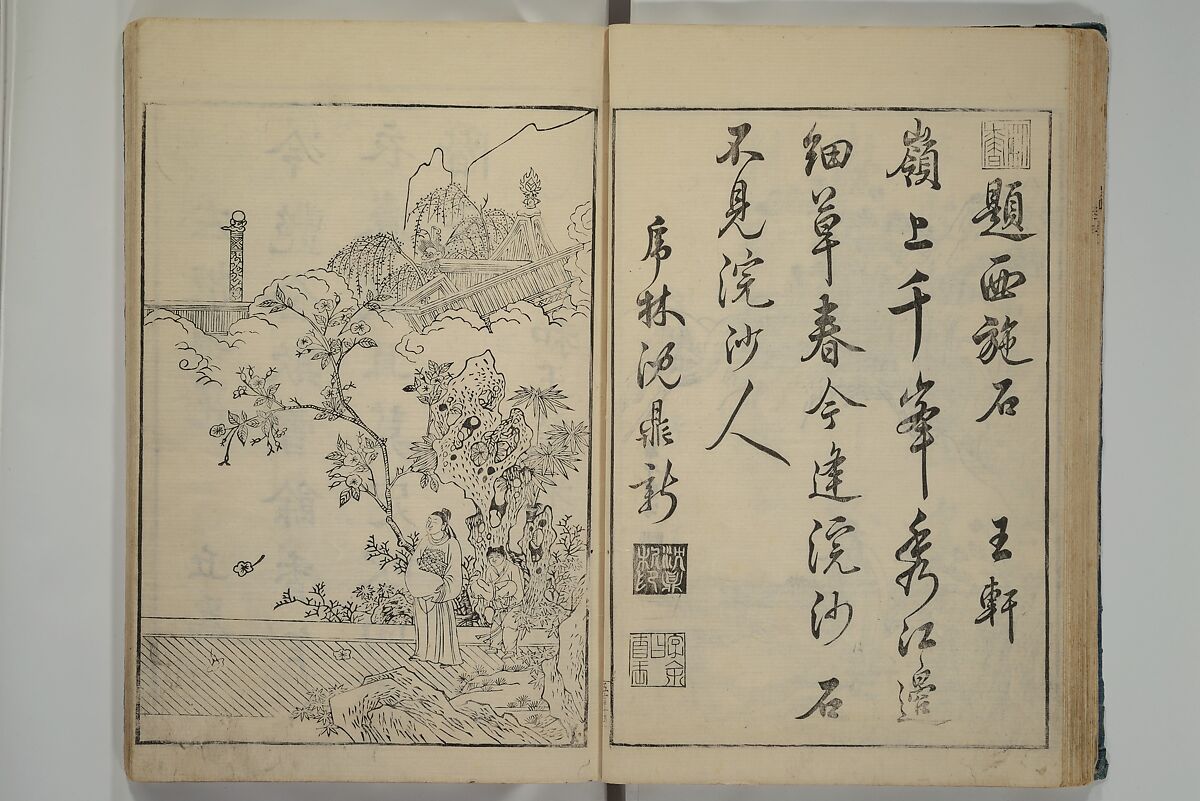 題西施石 王軒
嶺上千峯秀江邊
細草春今逢浣沙石
不見浣沙人
虎林沈鼎新
沈鼎新印